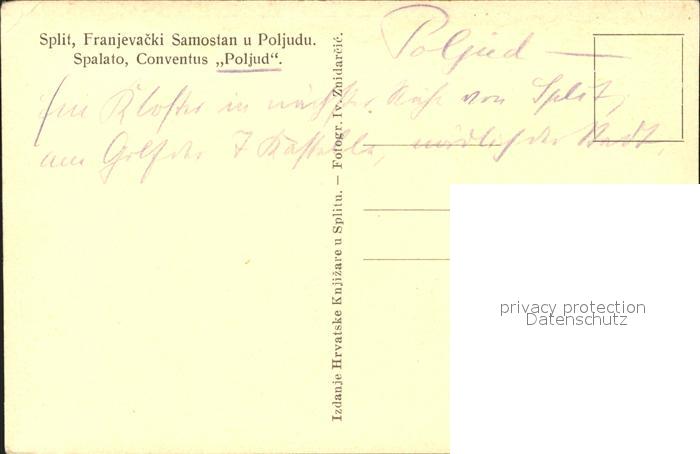 Split, Franjevački Samostan u Poljudu.
Spalato, Conventus „Poljud“.
Poljud
Ein Kloster in nächster Nähe von Split,
am Golf der 7 Kastelle, nördlich der Stadt.
Izdanje Hrvatske Knjižare u Splitu. — Fotogr. Iv. Znidarčić.
privacy protection
Datenschutz